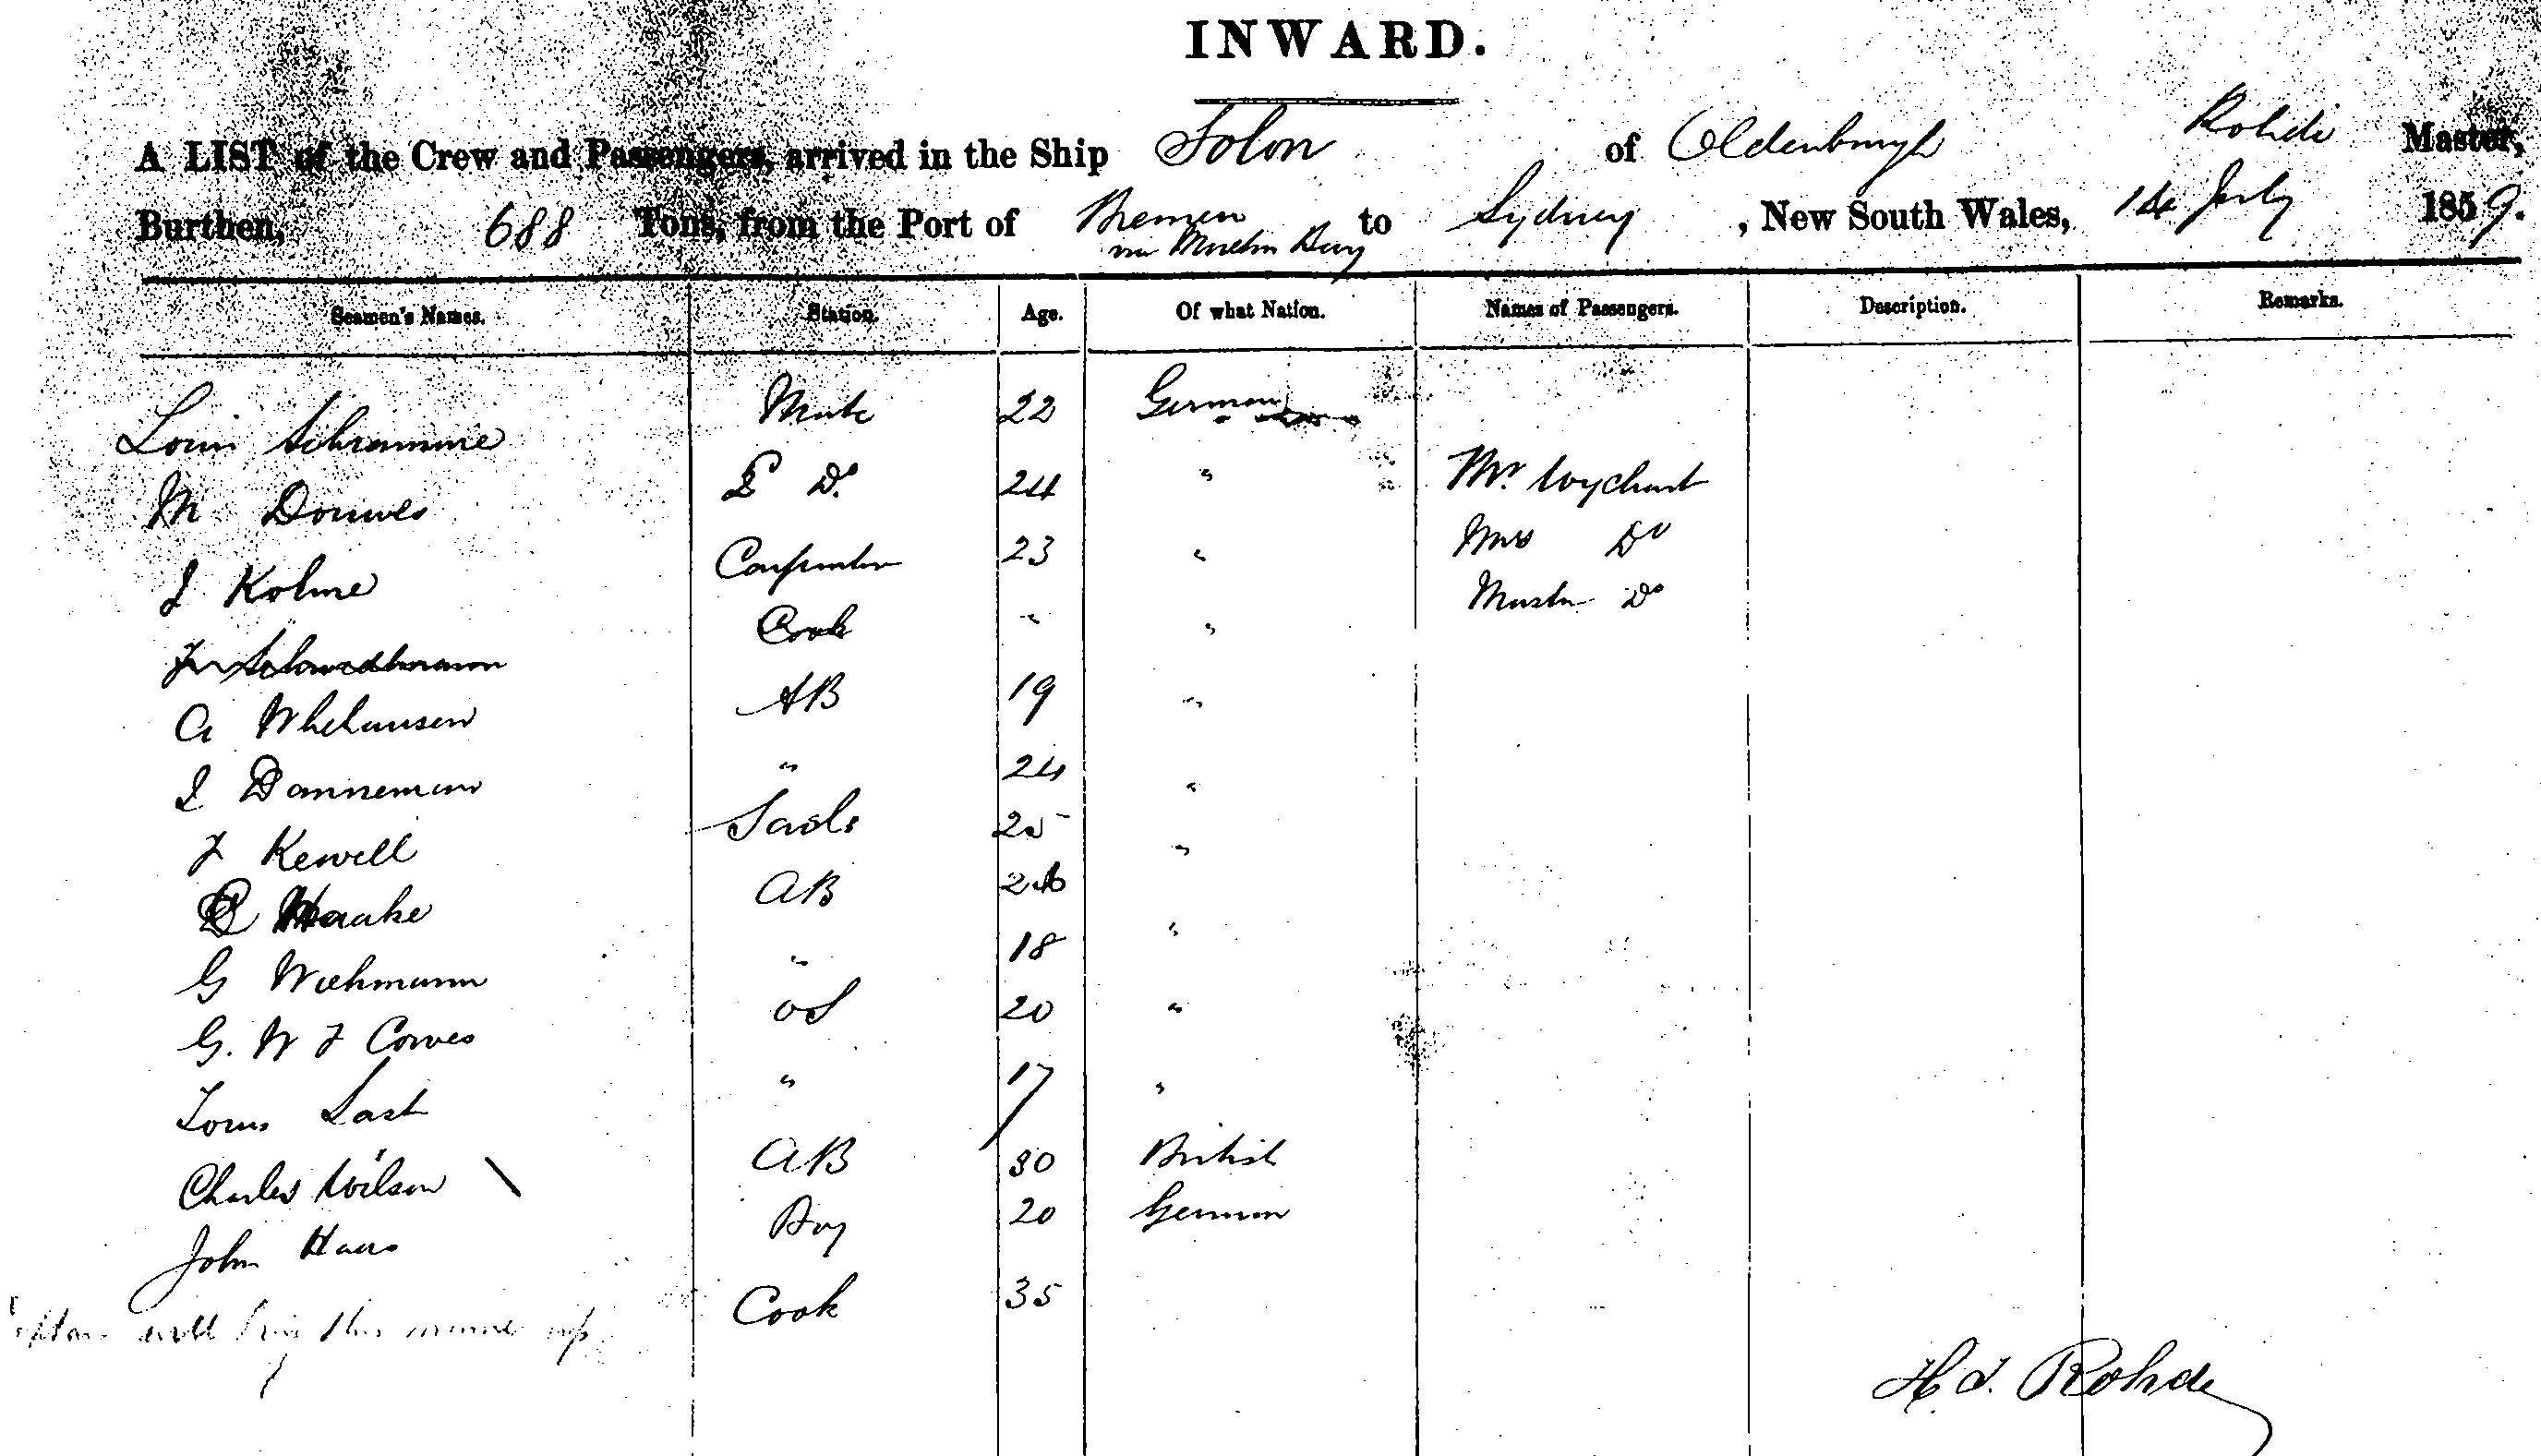 INWARD.
A LIST of the Crew and Passengers, arrived in the Ship Solon of Oldenburgh Rohde Master,
Burthen, 688 Tons, from the Port of Bremen to Sydney, New South Wales, 14 July 1859.
via Moreton Bay
Seamen's Names. Station. Age. Of what Nation. Names of Passengers. Description. Remarks.
Louis Schramme Mate 22 German
M Douwes 2 Do 24 " Mr. Wychart
J Kohne Carpenter 23 " Mrs Do
Cook " " Master Do
A Whehausen AB 19 "
J Danneman " 24 "
F Kewell Sails 25 "
Haake AB 26 "
G Wiehmann " 18 "
G. W F Cowes OS 20 "
Louis Last " 17 "
Charles Wilson \ AB 30 British
John Haas Boy 20 German
will bring this name up Cook 35
H. J. Rohde